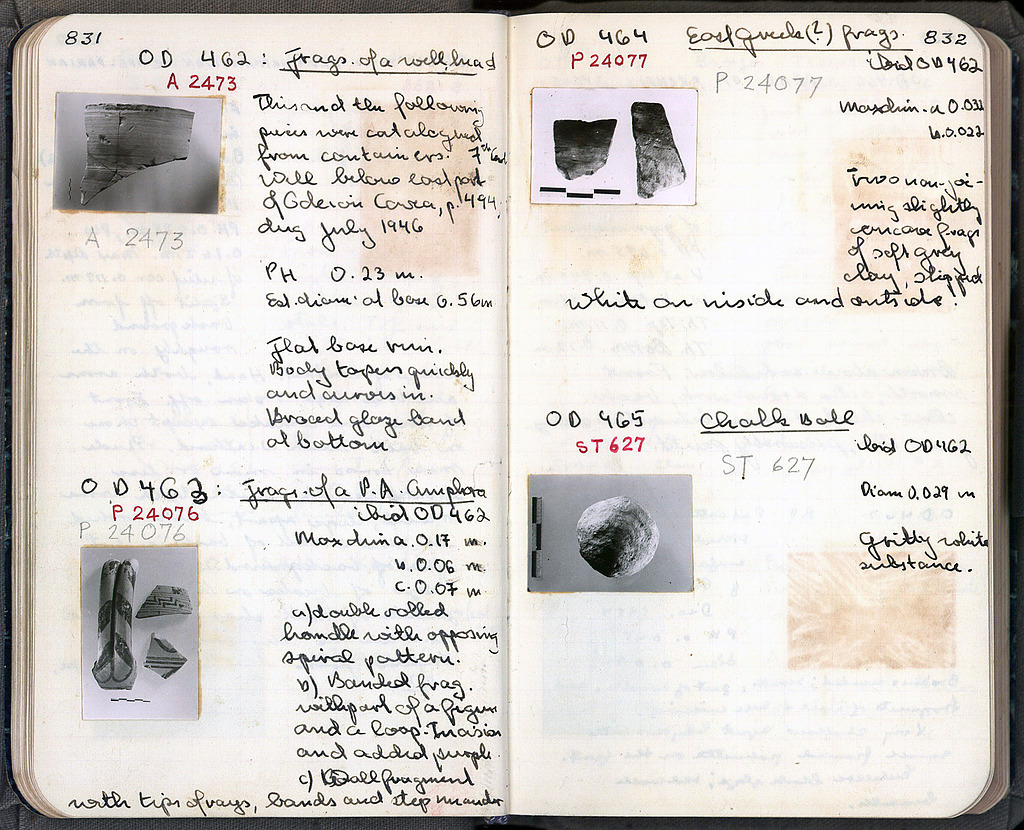 831
OD 462 : Frags. of a well head
A 2473
This and the following
pieces were catalogued
from containers. 7th Cent
Well below east part
of Odeion Cavea, p. 494,
dug July 1946
A 2473
PH 0.23 m.
Est. diam. at base 0.56m
Flat base rim.
Body tapers quickly
and curves in.
Broad glaze band
at bottom
OD 463 : Frags. of a P.A. Amphora
P 24076
ibid OD 462
P 24076
Max dim a. 0.17 m.
b. 0.06 m.
c. 0.07 m
a) double rolled
handle with opposing
spiral pattern.
b) Banded frag.
with part of a figure
and a loop. Incision
and added purple.
c) Wall fragment
with tips of rays, bands and step meander
832
OD 464 East Greek (?) frags.
P 24077
ibid OD 462
P 24077
Max dim. a 0.031
b. 0.022
Two non-joi-
ning slightly
concave frags
of soft grey
clay, slipped
white on inside and outside.
OD 465 Chalk Ball
ST 627
ibid OD 462
ST 627
Diam 0.029 m
Gritty white
substance.